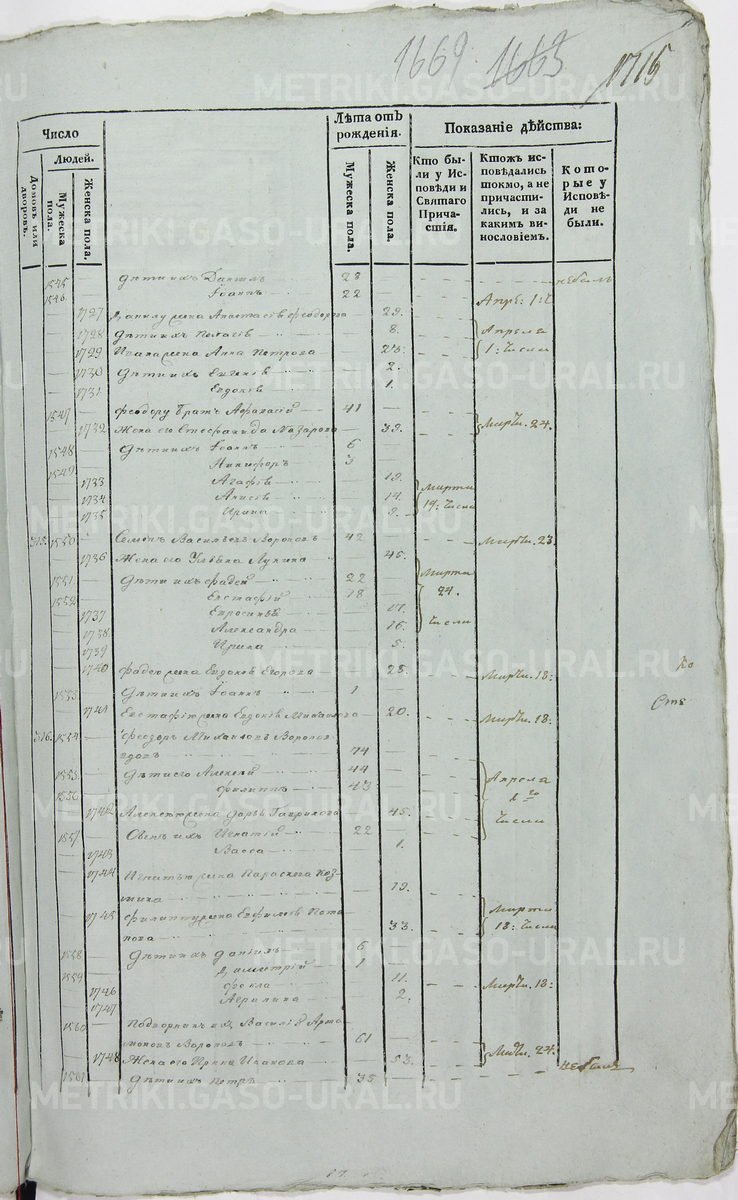 1669. 1663 1716
Число
Лѣта отъ рожденія.
Показаніе дѣйства:
Людей.
Домовъ или дворовъ.
Мужеска пола.
Женска пола.
Мужеска пола.
Женска пола.
Кто бы-
ли у Ис-
повѣди и
Святаго
Прича-
стія.
Ктожъ ис-
повѣдались
токмо, а не
причасти-
лись, и за
какимъ ви-
нословіемъ.
Кото-
рые у
Исповѣ-
ди не
были.
1545 дѣти ихъ Даніилъ 28
1546 Іоаннъ 22
1727 Данилу жена Анастасія Феодорова 29.
1728 дѣти ихъ Пелагія 8. Апреля
1729 Ивана жена Анна Петрова 23. 1: числа
1730 дѣти ихъ Евгенія 2.
1731 Евдокія 1.
1547 Феодору братъ Афанасій 41
1732 Жена его Стефанида Назарова 39. Марта. 24.
1548 дѣти ихъ Іоаннъ 6
1549 Никифоръ 3
1733 Агафія
1734 Анисія 14. Марта
1735 Ирина 19: числа
315. 1550 Семенъ Васильевъ Вороновъ 42 Марта. 23.
1736 Жена его Ульяна Лукина 45.
1551 дѣти ихъ Фадей 22 Марта
1552 Евстафій 18 24.
1737 Евросинія 17. числа
1738 Александра 16.
1739 Ирина 5.
1740 Фадею жена Евдокія Егорова 25. Марта. 18:
1553 дѣти ихъ Іоаннъ 1
1741 Евстафію жена Евдокія Михайлова 20. Марта. 18:
316. 1554 Феодоръ Михайловъ Вороновъ
вдовъ 74
1555 дѣти его Алексѣй 44
1556 Филиппъ 43 Апреля
1742 Алексѣю жена Дарья Гаврилова 45.
1557 Игнатій 22 числа
1743 Васса 1.
1744 Игнатью жена Параскева Коз-
мина 19.
1745 Филиппу жена Евфимія Пота-
пова 33. Марта 18: числа
1558 дѣти ихъ Даніилъ 6
1559 Димитрій 1
1746 Фекла 11. Марта. 18:
1747 Агрипина 2.
1560 Подворникъ ихъ Василій Арта-
моновъ Вороновъ 61
1748 Жена его Ирина Иванова 53. Марта. 24.
1561 дѣти ихъ Петръ 35 не былъ
METRIKI.GASO-URAL.RU